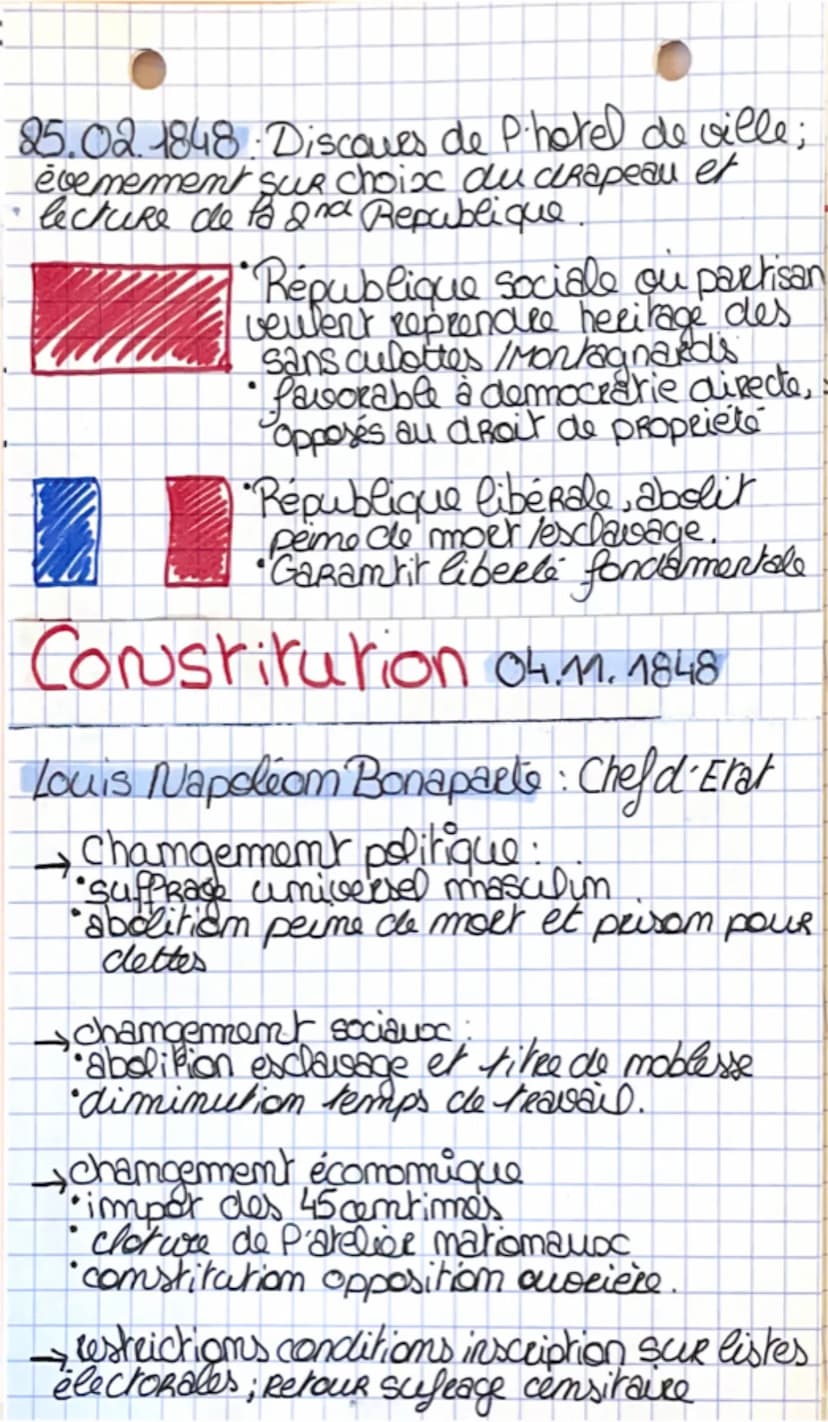 25.02.1848 : Discours de l'hotel de ville ;
évenement sur choix du drapeau et
lecture de la 2nd Republique.
• République sociale ou partisan
veulent reprendre heritage des
sans culottes / Montagnards
• favorable à democratie directe,
opposés au droit de propriété
• République libérale, abolit
peine de mort / esclavage.
• Garantit liberté fondamentale
Constitution 04.11.1848
Louis Napoléon Bonaparte : Chef d'Etat
→ Changement politique :
• suffrage universel masculin
• abolition peine de mort et prison pour
dettes
→ changement sociaux :
• abolition esclavage et titre de noblesse
• diminution temps de travail.
→ changement économique
• impot des 45 centimes
• cloture de l'atelier nationaux
• constitution opposition ouvrière.
→ restrictions conditions inscription sur listes
électorales ; retour sufrage censitaire